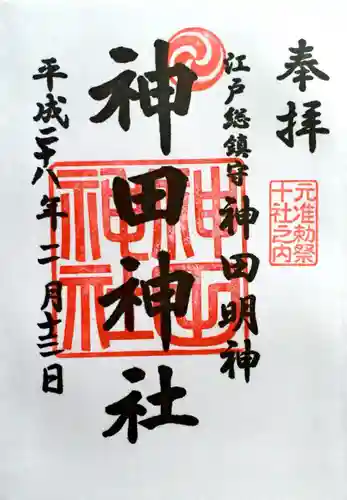 奉拝
元准勅祭
十社之内
江戸総鎮守 神田明神
神田神社
神田神社
平成二十八年二月十三日